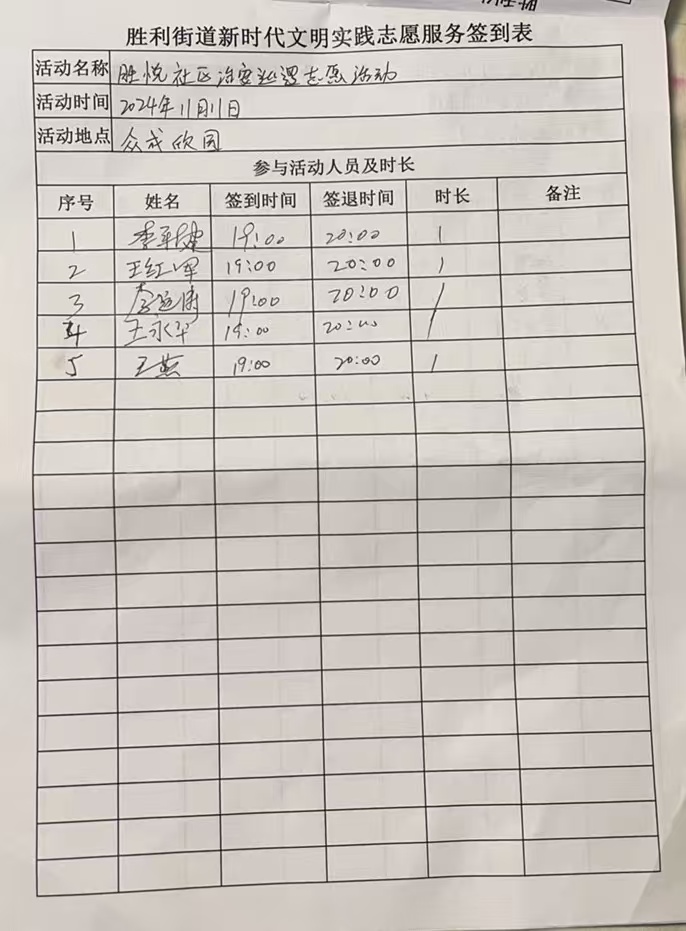 胜利街道新时代文明实践志愿服务签到表
活动名称 胜悦社区治安巡逻志愿活动
活动时间 2024年11月11日
活动地点 众成欣园
参与活动人员及时长
序号 姓名 签到时间 签退时间 时长 备注
1 19:00 20:00 1
2 王红军 19:00 20:00 1
3 19:00 20:00 1
4 王永华 19:00 20:00 1
5 王燕 19:00 20:00 1